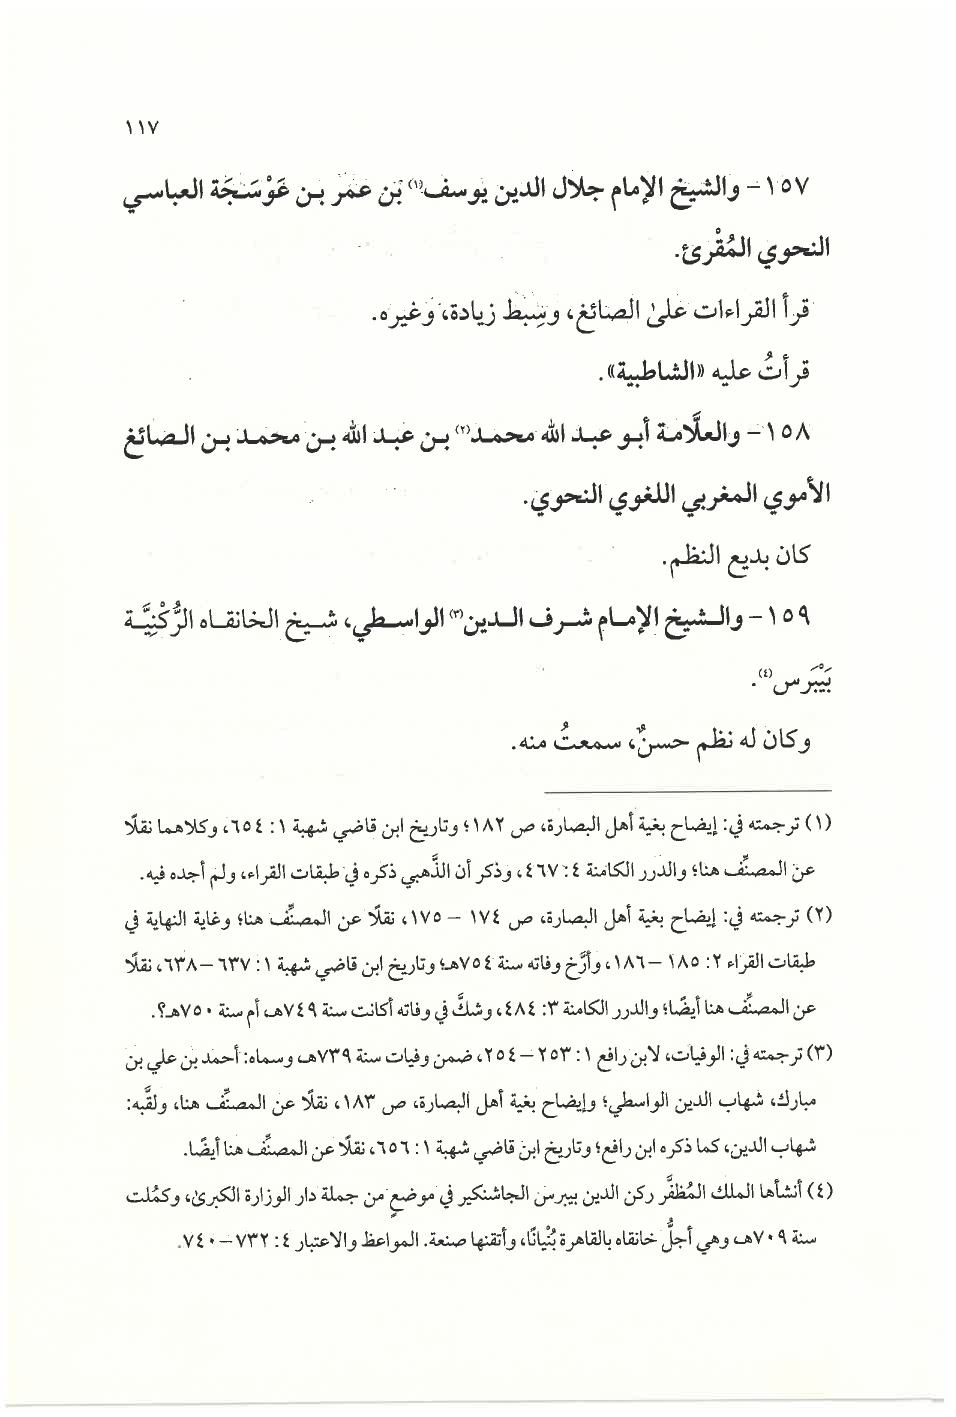 ١١٧
١٥٧- والشيخ الإمام جلال الدين يوسف(١) بْن عمَر بن عَوْسَجَة العباسي
النحوي المُقْرئ.
قرأ القراءات علىٰ الصائغ، وسِبْط زيادة، وغيره.
قرأتُ عليه «الشاطبية».
١٥٨- والعلَّامة أبو عبد الله محمد(٢) بن عبد الله بن محمد بن الصائغ
الأموي المغربي اللغوي النحوي.
كان بديع النظم.
١٥٩- والشيخ الإمام شرف الدين(٣) الواسطي، شيخ الخانقاه الرُّكْنِيَّة
بَيْبَرس(٤).
وكان له نظم حسنٌ، سمعتُ منه.
(١) ترجمته في: إيضاح بغية أهل البصارة، ص ١٨٢؛ وتاريخ ابن قاضي شهبة ١: ٦٥٤، وكلاهما نقلًا
عن المصنِّف هنا؛ والدرر الكامنة ٤: ٤٦٧، وذكر أن الذَّهبي ذكره في طبقات القراء، ولم أجده فيه.
(٢) ترجمته في: إيضاح بغية أهل البصارة، ص ١٧٤ – ١٧٥، نقلًا عن المصنِّف هنا؛ وغاية النهاية في
طبقات القراء ٢: ١٨٥ –١٨٦، وأرَّخ وفاته سنة ٧٥٤هـ؛ وتاريخ ابن قاضي شهبة ١: ٦٣٧–٦٣٨، نقلًا
عن المصنِّف هنا أيضًا؛ والدرر الكامنة ٣: ٤٨٤، وشكَّ في وفاته أكانت سنة ٧٤٩هـ، أم سنة ٧٥٠هـ؟.
(٣) ترجمته في: الوفيات، لابن رافع ١: ٢٥٣–٢٥٤، ضمن وفيات سنة ٧٣٩هـ، وسماه: أحمد بن علي بن
مبارك، شهاب الدين الواسطي؛ وإيضاح بغية أهل البصارة، ص ١٨٣، نقلًا عن المصنِّف هنا، ولقَّبه:
شهاب الدين، كما ذكره ابن رافع؛ وتاريخ ابن قاضي شهبة ١: ٦٥٦، نقلًا عن المصنِّف هنا أيضًا.
(٤) أنشأها الملك المُظفَّر ركن الدين بيبرس الجاشنكير في موضعٍ من جملة دار الوزارة الكبرىٰ، وكمُلت
سنة ٧٠٩هـ، وهي أجلُّ خانقاه بالقاهرة بُنْيانًا، وأتقنها صنعة. المواعظ والاعتبار ٤: ٧٣٢–٧٤٠.